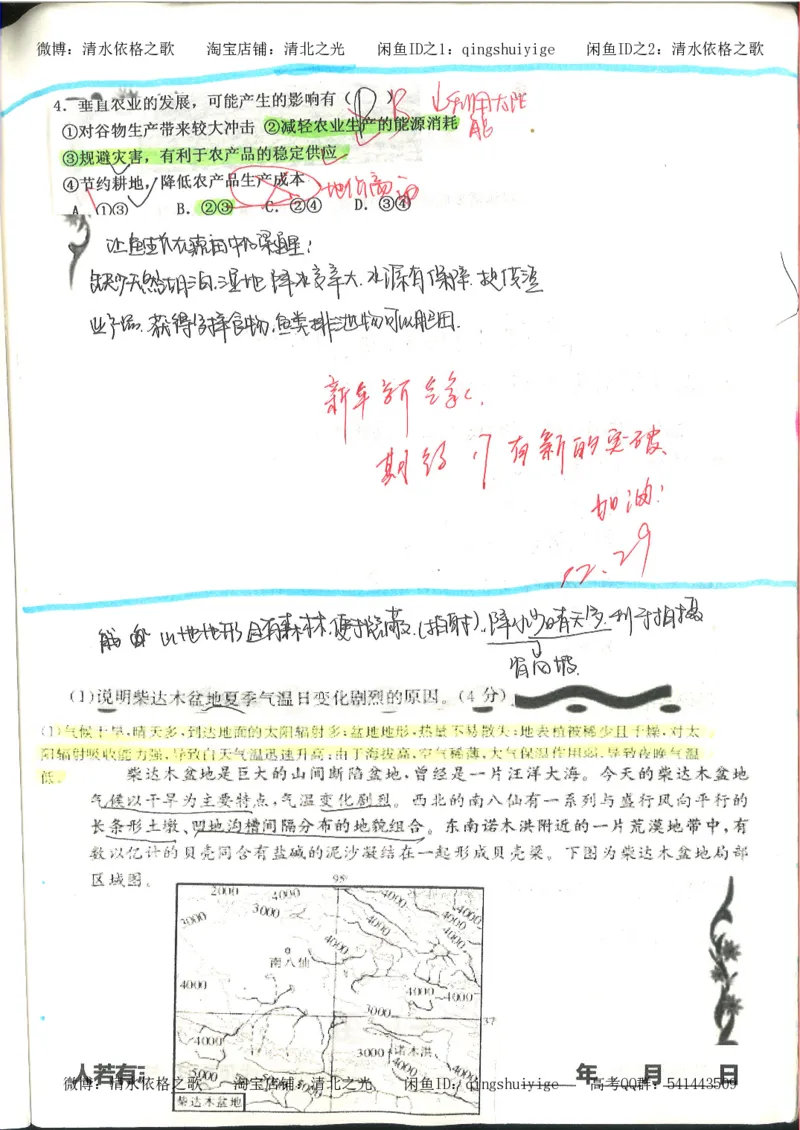 微博：清水依格之歌 淘宝店铺：清北之光 闲鱼ID之1：qingshuiyige 闲鱼ID之2：清水依格之歌
4. 垂直农业的发展，可能产生的影响有（D）B 利用太阳能
①对谷物生产带来较大冲击 ②减轻农业生产的能源消耗
③规避灾害，有利于农产品的稳定供应
④节约耕地，降低农产品生产成本 地价高
A. ①③ B. ②③ C. ②④ D. ③④
缺少天然湖泊.湿地.降水变率大.水源有保障.
获得 食物.鱼类排泄物可以肥田.
新年新气象.
期待 有新的突破
加油!
12.29
山地地形 且有森林.便于隐蔽.(拍射).降水少晴天多.利于拍摄
(1)说明柴达木盆地夏季气温日变化剧烈的原因。(4 分)
(1)气候干旱,晴天多,到达地面的太阳辐射多;盆地地形,热量不易散失;地表植被稀少且干燥,对太
阳辐射吸收能力强,导致白天气温迅速升高;由于海拔高,空气稀薄,大气保温作用弱,导致夜晚气温
低。
柴达木盆地是巨大的山间断陷盆地,曾经是一片汪洋大海。今天的柴达木盆地
气候以干旱为主要特点,气温变化剧烈。西北的南八仙有一系列与盛行风向平行的
长条形土墩、凹地沟槽间隔分布的地貌组合。东南诺木洪附近的一片荒漠地带中,有
数以亿计的贝壳同含有盐碱的泥沙凝结在一起形成贝壳梁。下图为柴达木盆地局部
区域图。
95°
2000 4000 4000 4000
3000 3000 4000 4000
4000 4000
南八仙
4000 4000 4000
3000 37
4000 3000 诺木洪
5000 4000 4000
柴达木盆地
人若有 年 月 日
微博：清水依格之歌 淘宝店铺：清北之光 闲鱼ID：qingshuiyige 高考QQ群：541443509